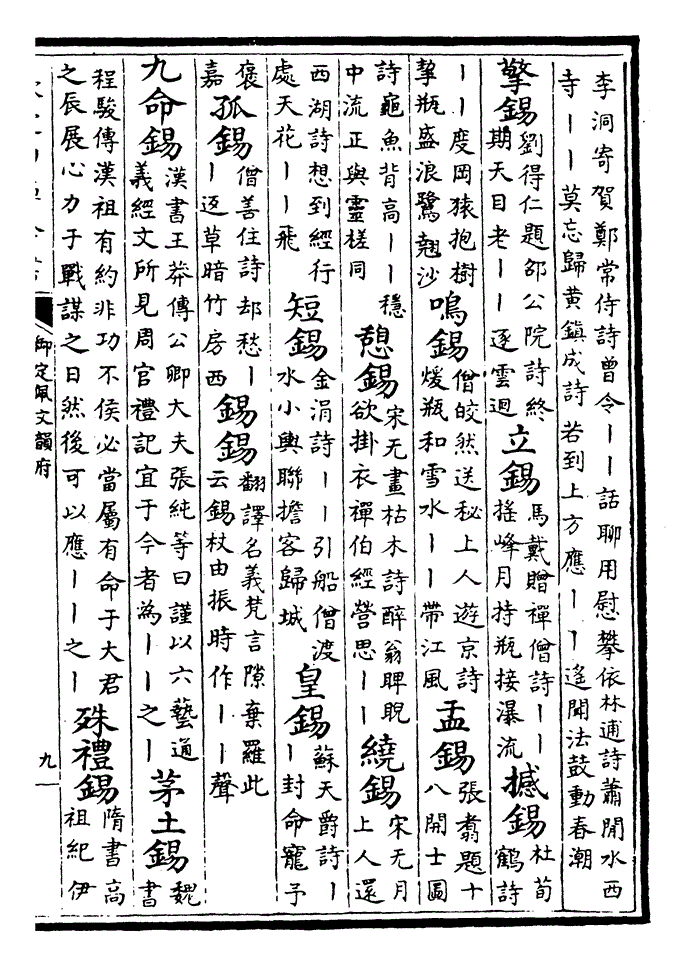 李洞寄賀鄭常侍詩曾令丨丨話聊用慰攀依林逋詩蕭閒水西
寺丨丨莫忘歸黃鎮成詩若到上方應丨丨遙聞法鼓動春潮
擎錫
劉得仁題邵公院詩終
期天目老丨丨逐雲迴
立錫
馬戴贈禪僧詩丨丨
搖峰月持瓶接瀑流
撼錫
杜荀
鶴詩
丨丨度岡猿抱樹
挈瓶盛浪鷺翹沙
鳴錫
僧皎然送秘上人遊京詩
煖瓶和雪水丨丨帶江風
盂錫
張翥題十
八開士圖
詩龜魚背高丨丨穩
中流正與靈槎同
憩錫
宋无畫枯木詩醉翁睥睨
欲掛衣禪伯經營思丨丨
繞錫
宋无月
上人還
西湖詩想到經行
處天花丨丨飛
短錫
金涓詩丨丨引船僧渡
水小輿聯擔客歸城
皇錫
蘇天爵詩丨
丨封命寵予
褒
嘉
孤錫
僧善住詩却愁丨
丨返草暗竹房西
錫錫
翻譯名義梵言隙棄羅此
云錫杖由振時作丨丨聲
九命錫
漢書王莽傳公卿大夫張純等曰謹以六藝通
義經文所見周官禮記宜于今者為丨丨之丨
茅土錫
魏
書
程駿傳漢祖有約非功不侯必當屬有命于大君
之辰展心力于戰謀之日然後可以應丨丨之丨
殊禮錫
隋書高
祖紀伊
御定佩文韻府
九